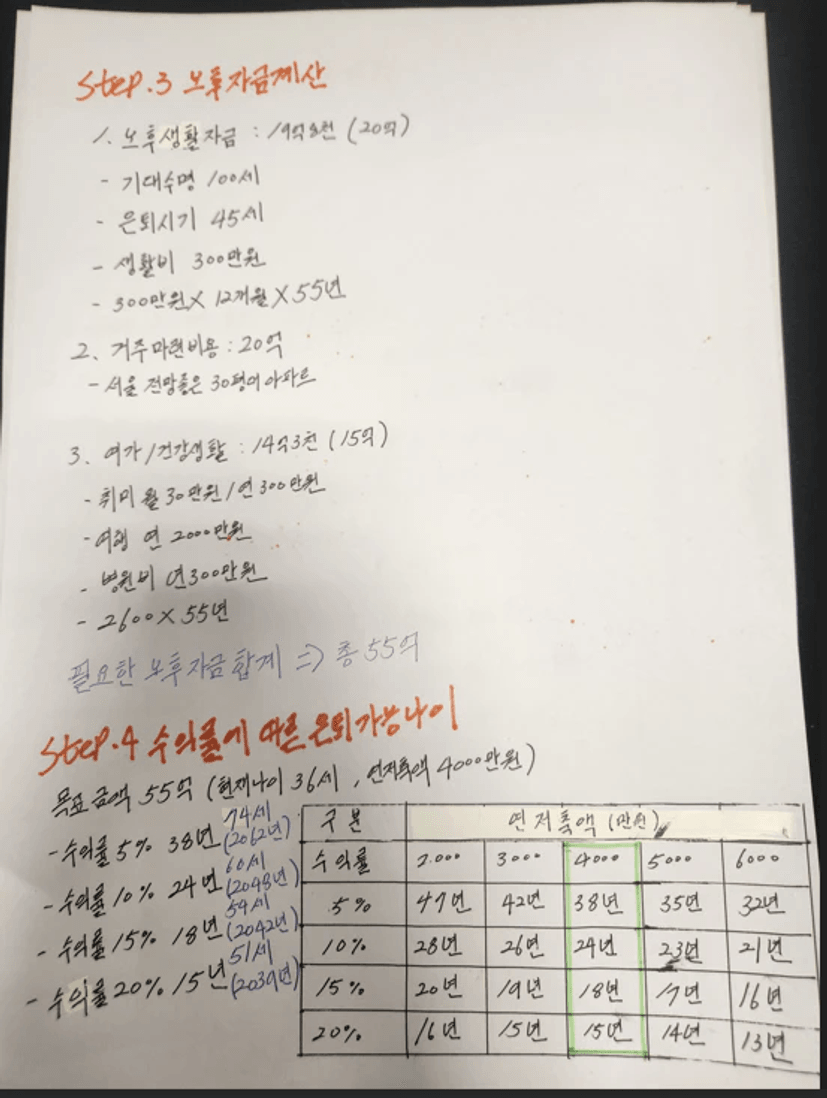 Step.3 노후자금계산
1. 노후생활자금 : 19억8천 (20억)
- 기대수명 100세
- 은퇴시기 45세
- 생활비 300만원
- 300만원 X 12개월 X 55년
2. 거주마련비용 : 20억
- 서울 전망좋은 30평대 아파트
3. 여가/건강생활 : 14억3천 (15억)
- 취미 월30만원/연300만원
- 여행 연 2000만원
- 병원비 년300만원
- 2600 X 55년
필요한 노후자금 합계 => 총 55억
Step.4 수익률에 따른 은퇴가능나이
목표금액 55억 (현재나이 36세, 연저축액 4000만원)
- 수익률 5% 38년 74세 (2062년)
- 수익률 10% 24년 60세 (2048년)
- 수익률 15% 18년 54세 (2042년)
- 수익률 20% 15년 51세 (2039년)
구분 연저축액 (만원)
수익률 2.000 3000 4000 5000 6000
5% 47년 42년 38년 35년 32년
10% 28년 26년 24년 23년 21년
15% 20년 19년 18년 17년 16년
20% 16년 15년 15년 14년 13년